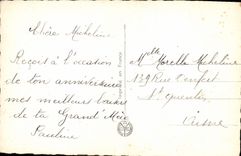 Chère Micheline
Reçois à l'occasion
de ton anniversaire
mes meilleurs baisers
de ta Grand Mère
Pauline
Melle Morelle Micheline
139 Rue
St Quentin
Aisne